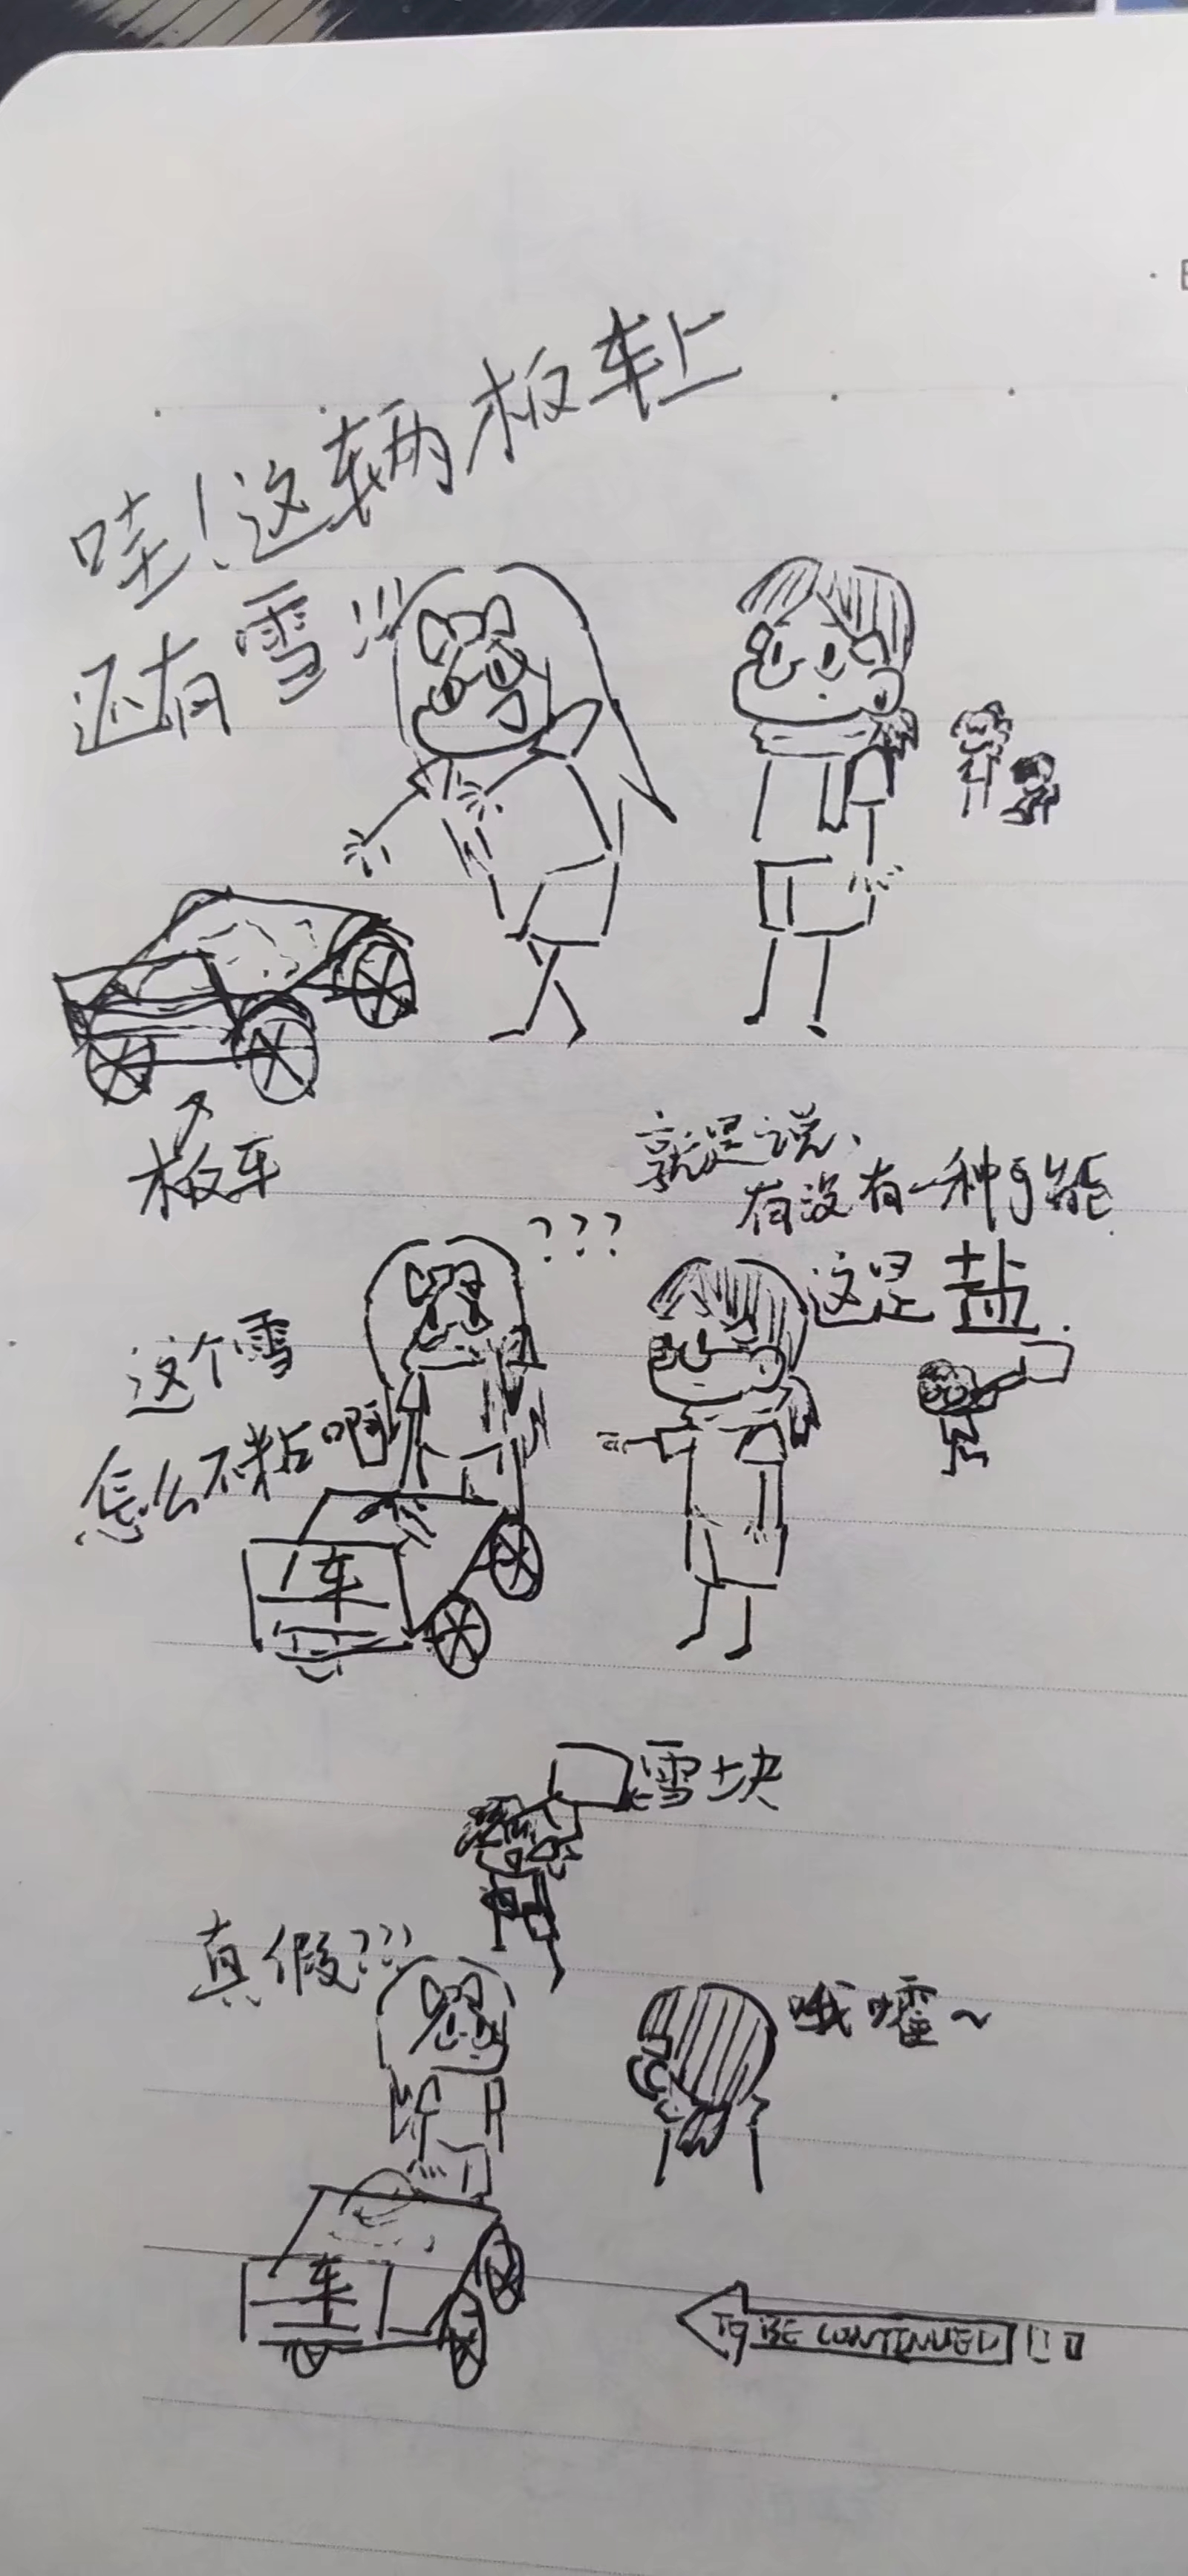 哇！这辆板车上
还有雪!!!
板车
就是说、
有没有一种可能
这是盐.
???
这个雪
怎么不粘啊
车
雪块
真假???
哦嚯~
车
TO BE CONTINUED